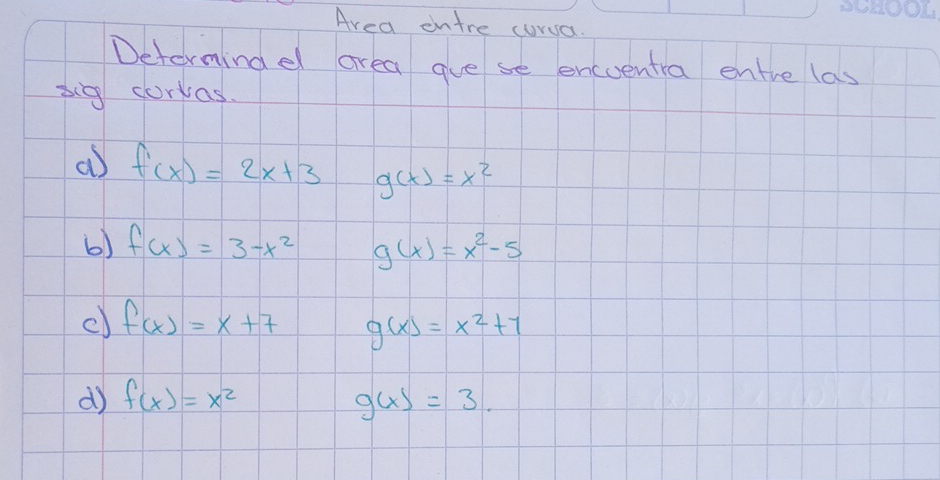 SCHOOL
Area entre curva.
Determina el area que se encuentra entre las
sig corvas.
a) f(x) = 2x+3 g(x) = x²
b) f(x) = 3-x² g(x) = x²-5
c) f(x) = x+7 g(x) = x²+1
d) f(x) = x² g(x) = 3.